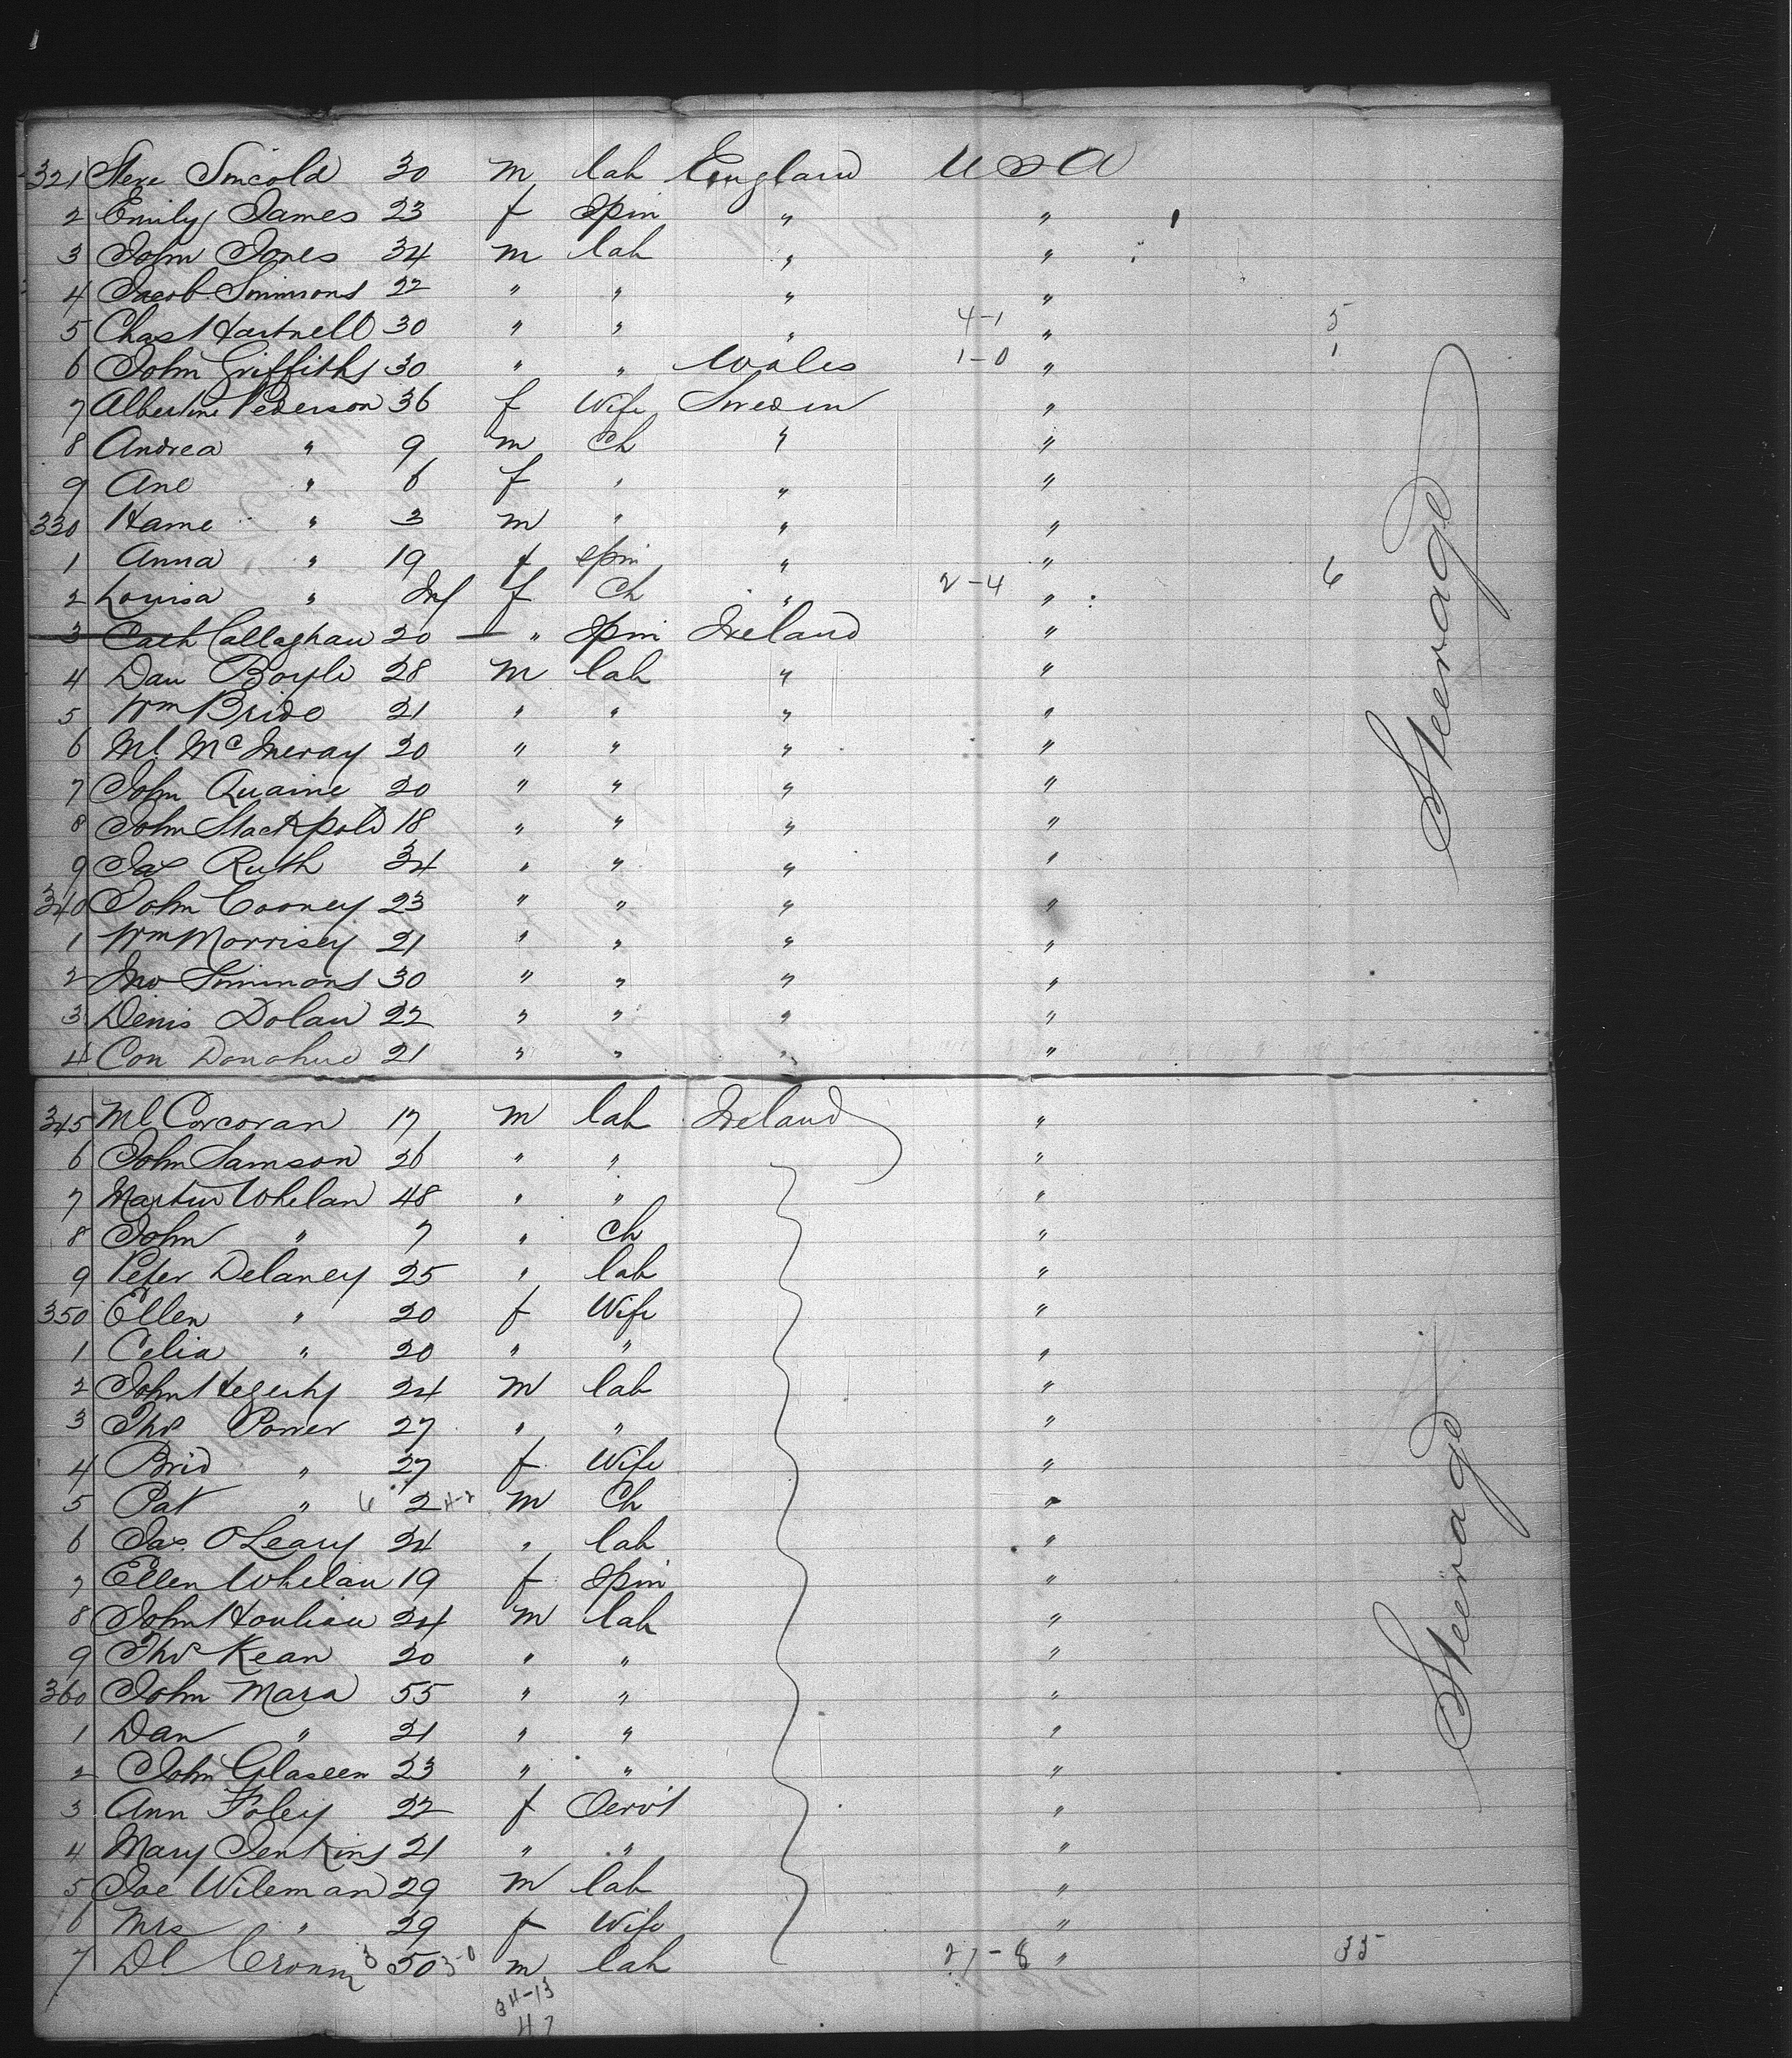 321 Steve Sincold 30 m lab England USA
2 Emily James 23 f Spin " "
3 John Jones 34 m lab " "
4 Jacob Simmons 22 " " " "
5 Chas Hartnell 30 " " " 4-1 " 5
6 John Griffiths 30 " " Wales 1-0 " 1
7 Albertine Pederson 36 f Wife Sweden "
8 Andrea " 9 m Ch " "
9 Ane " 6 f " " "
330 Hame " 3 m " " "
1 Anna " 19 f spin " "
2 Louisa " Inf f Ch " 2-4 " 6
3 Cath Callaghan 20 " Spin Ireland "
4 Dan Boyle 28 m lab " "
5 Wm Bride 21 " " " "
6 Ml. McIneray 20 " " " "
7 John Quaine 20 " " " "
8 John Stackpole 18 " " " "
9 Jas Ruth 34 " " " "
340 John Cooney 23 " " " "
1 Wm Morrisey 21 " " " "
2 Jno Simmons 30 " " " "
3 Denis Dolan 22 " " " "
4 Con Donohue 21 " " " "
Steerage
345 Ml Corcoran 17 m lab Ireland "
6 John Samson 26 " " "
7 Martin Whelan 48 " " "
8 John " 7 " Ch "
9 Peter Delaney 25 " lab "
350 Ellen " 20 f Wife "
1 Celia " 20 " " "
2 John Hegerty 24 m lab "
3 Thos Power 27 " " "
4 Brid " 27 f Wife "
5 Pat " 6 2 4-2 m Ch "
6 Jas. O'Leary 24 " lab "
7 Ellen Whelan 19 f Spin "
8 John Houlian 24 m lab "
9 Thos Kean 20 " " "
360 John Mara 55 " " "
1 Dan " 21 " " "
2 John Glaseen 23 " " "
3 Ann Foley 22 f Servt "
4 Mary Jenkins 21 " " "
5 Joe Wileman 29 m lab "
6 Mrs " 29 f Wife "
7 Dl Cronin 3 50 3-0 m lab 27-8 " 35
34-13
47
Steerage